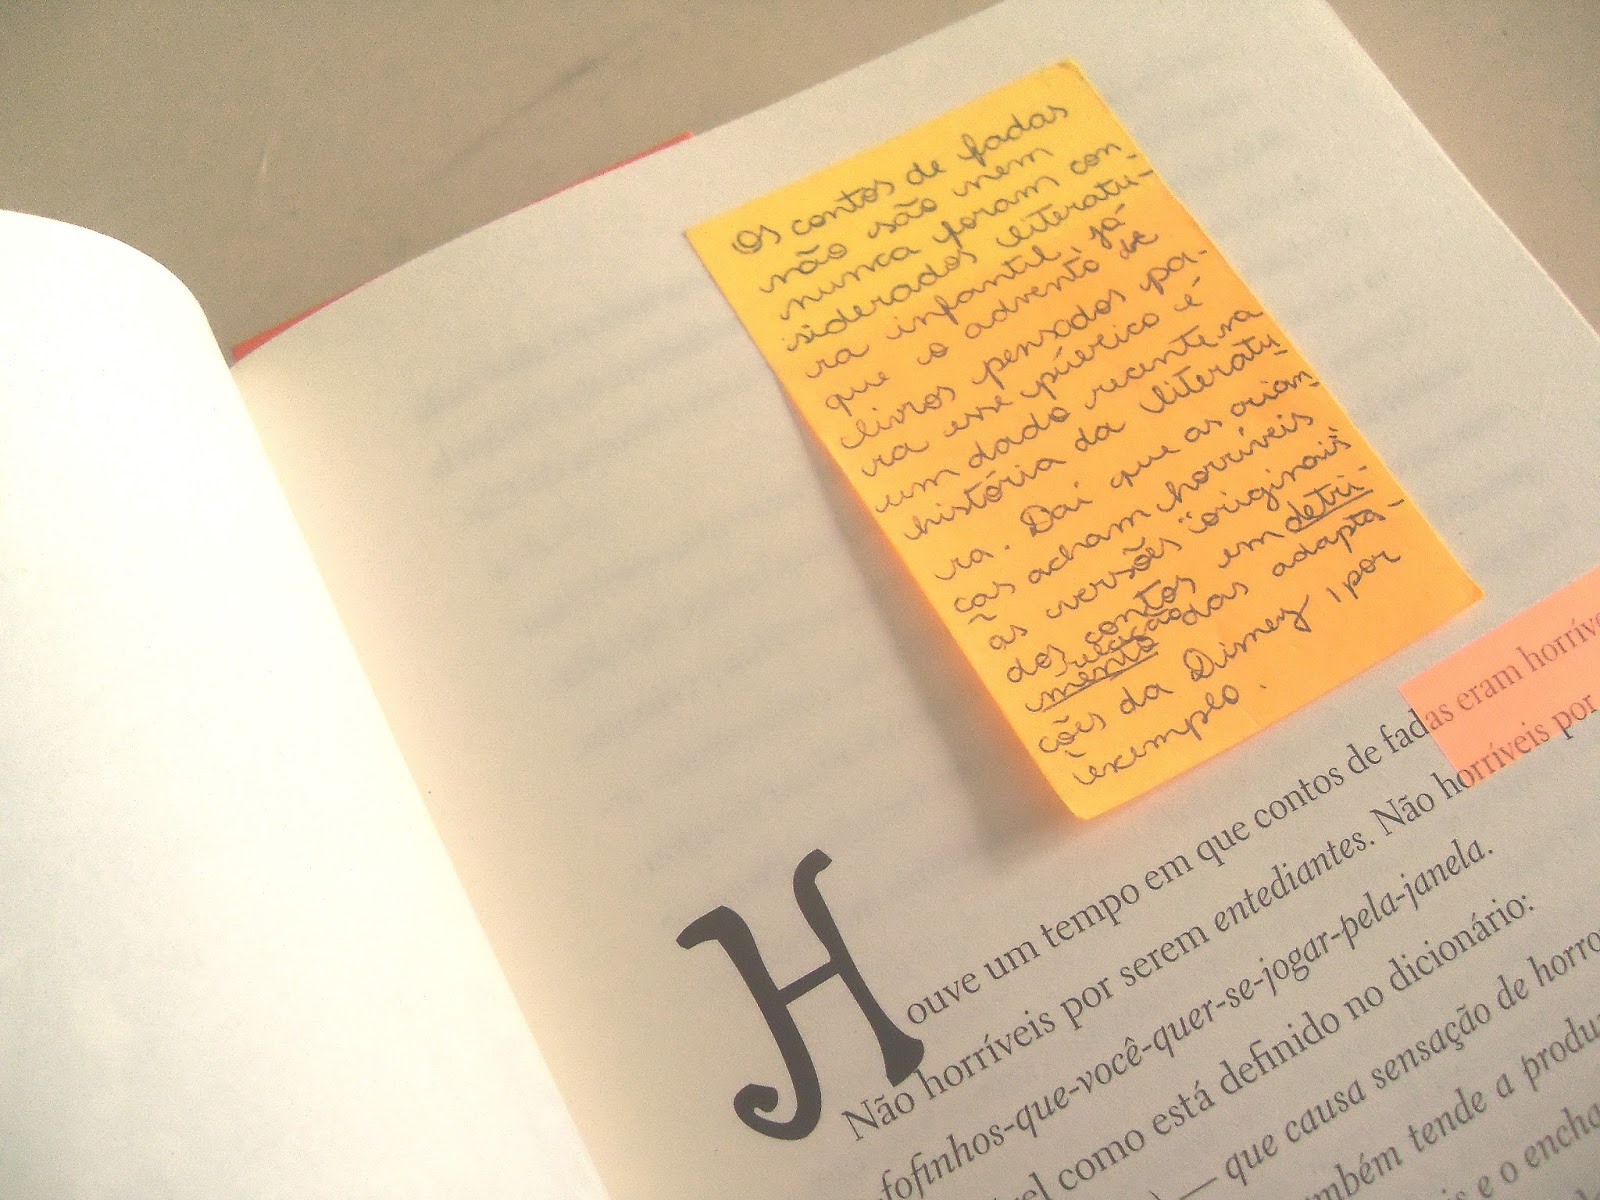 Os contos de fadas
não são nem
nunca foram con-
siderados literatu-
ra infantil, já
que o advento de
livros pensados pa-
ra esse público é
um dado recente na
história da literatu-
ra. Daí que as crian-
ças acham horríveis
as versões "originais"
dos contos em detri-
relação
mento das adapta-
ções da Disney, por
exemplo.
Houve um tempo em que contos de fadas eram horríve
Não horríveis por serem entediantes. Não horríveis por
fofinhos-que-você-quer-se-jogar-pela-janela.
vel como está definido no dicionário:
— que causa sensação de horro
mbém tende a produz
is e o encha